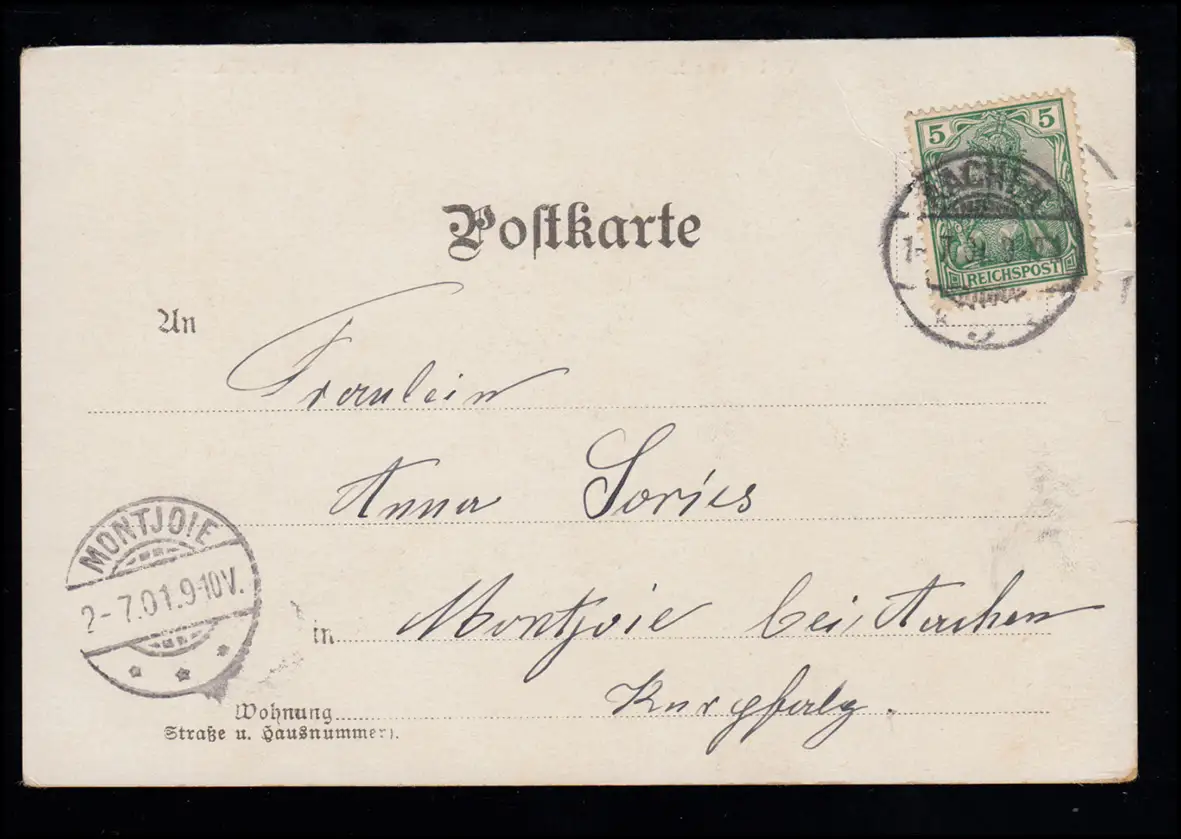 5 5
AACHEN
1-7.01.
REICHSPOST
Postkarte
An
Fräulein
Anna Sories
MONTJOIE
2-7.01.9-10V.
in Montjoie bei Aachen
Kurpfalz.
Wohnung
Straße u. Hausnummer).